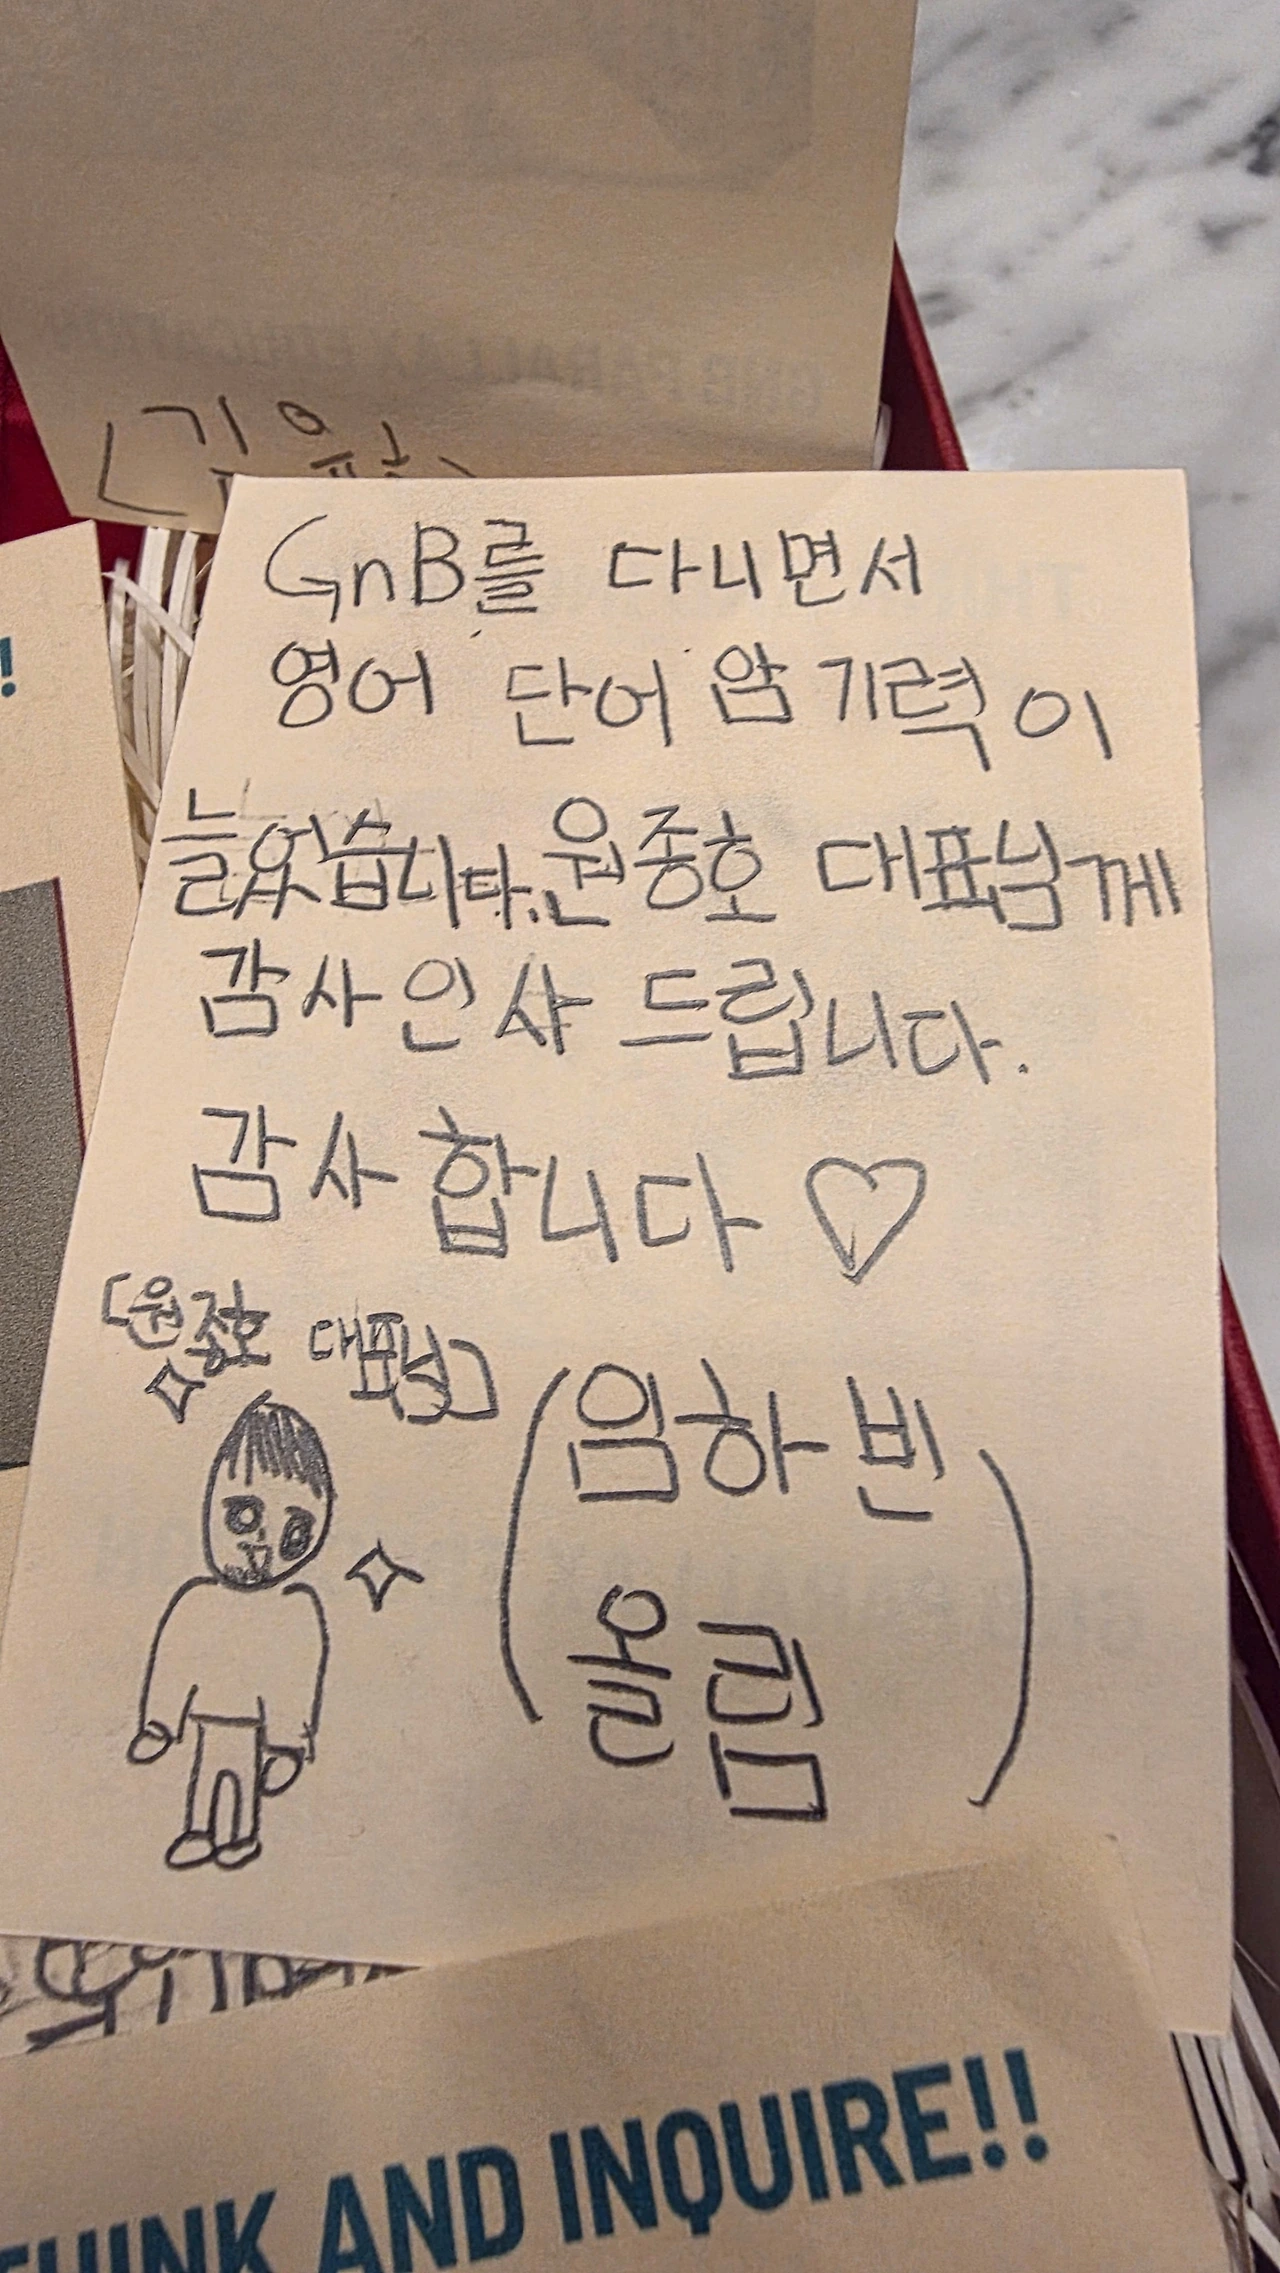 GnB를 다니면서
영어 단어 암기력이
늘었습니다. 원종호 대표님께
감사인사 드립니다.
감사합니다 ♡
[원종호 대표님]
(임하빈
올림)
THINK AND INQUIRE!!